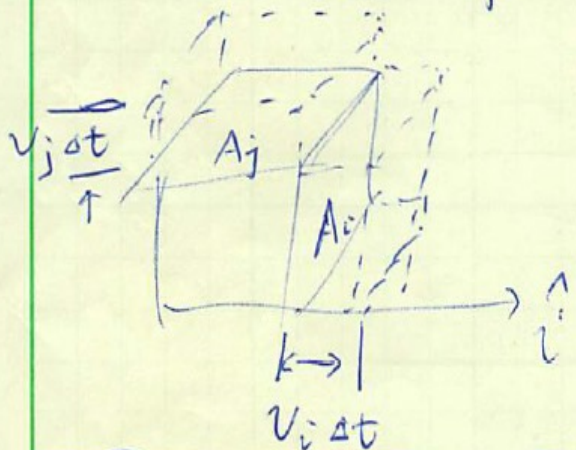 V_j Δt
A_j
A_i
î
V_i Δt